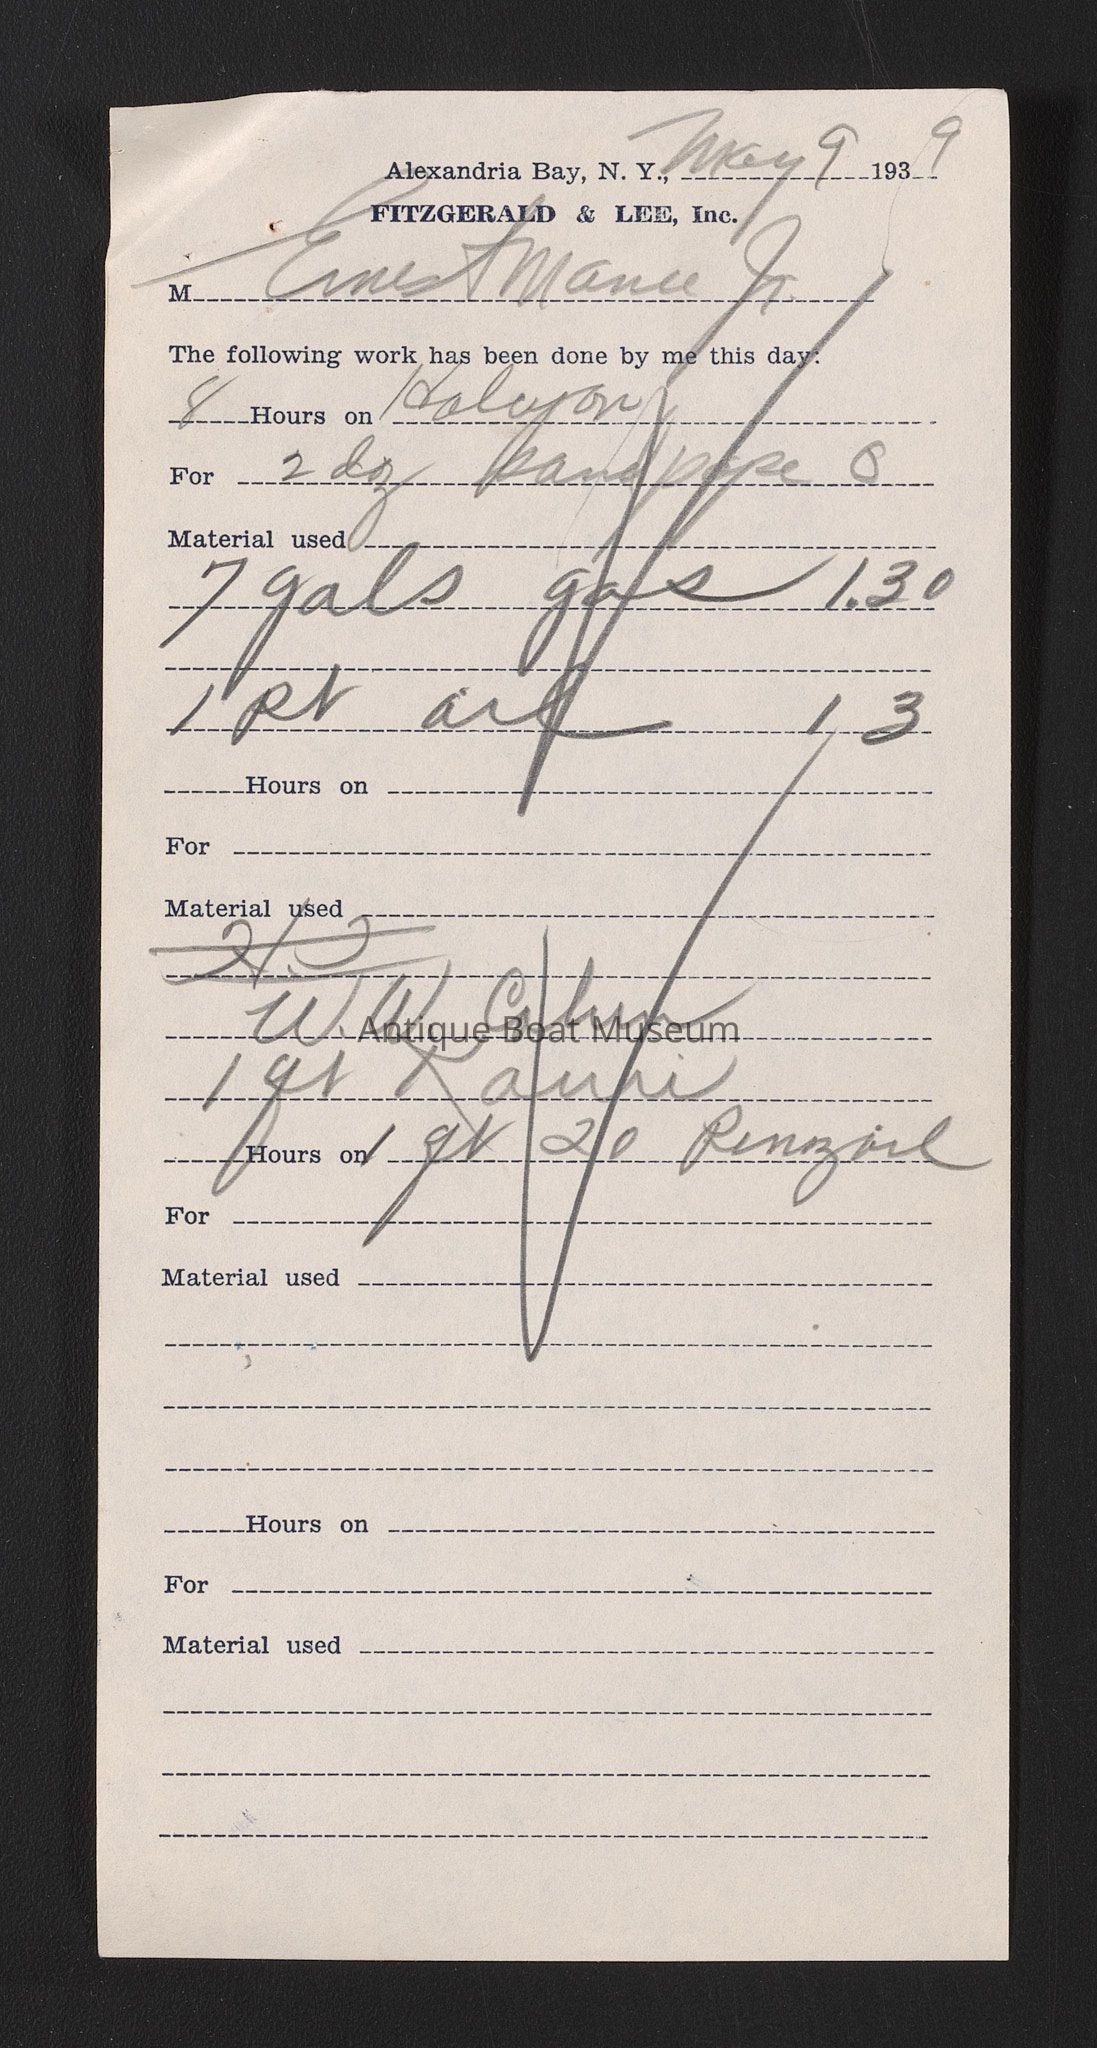 Alexandria Bay, N. Y., May 9 1939
FITZGERALD & LEE, Inc.
M Ernest Jr.
The following work has been done by me this day:
8 Hours on Halcyon
For 2 doz sand pape 8
Material used
7 gals gas 1.30
1 pt oil 13
Hours on
For
Material used
W.
Antique Boat Museum
1 qt
Hours on 1 qt 20 Pennzoil
For
Material used
Hours on
For
Material used